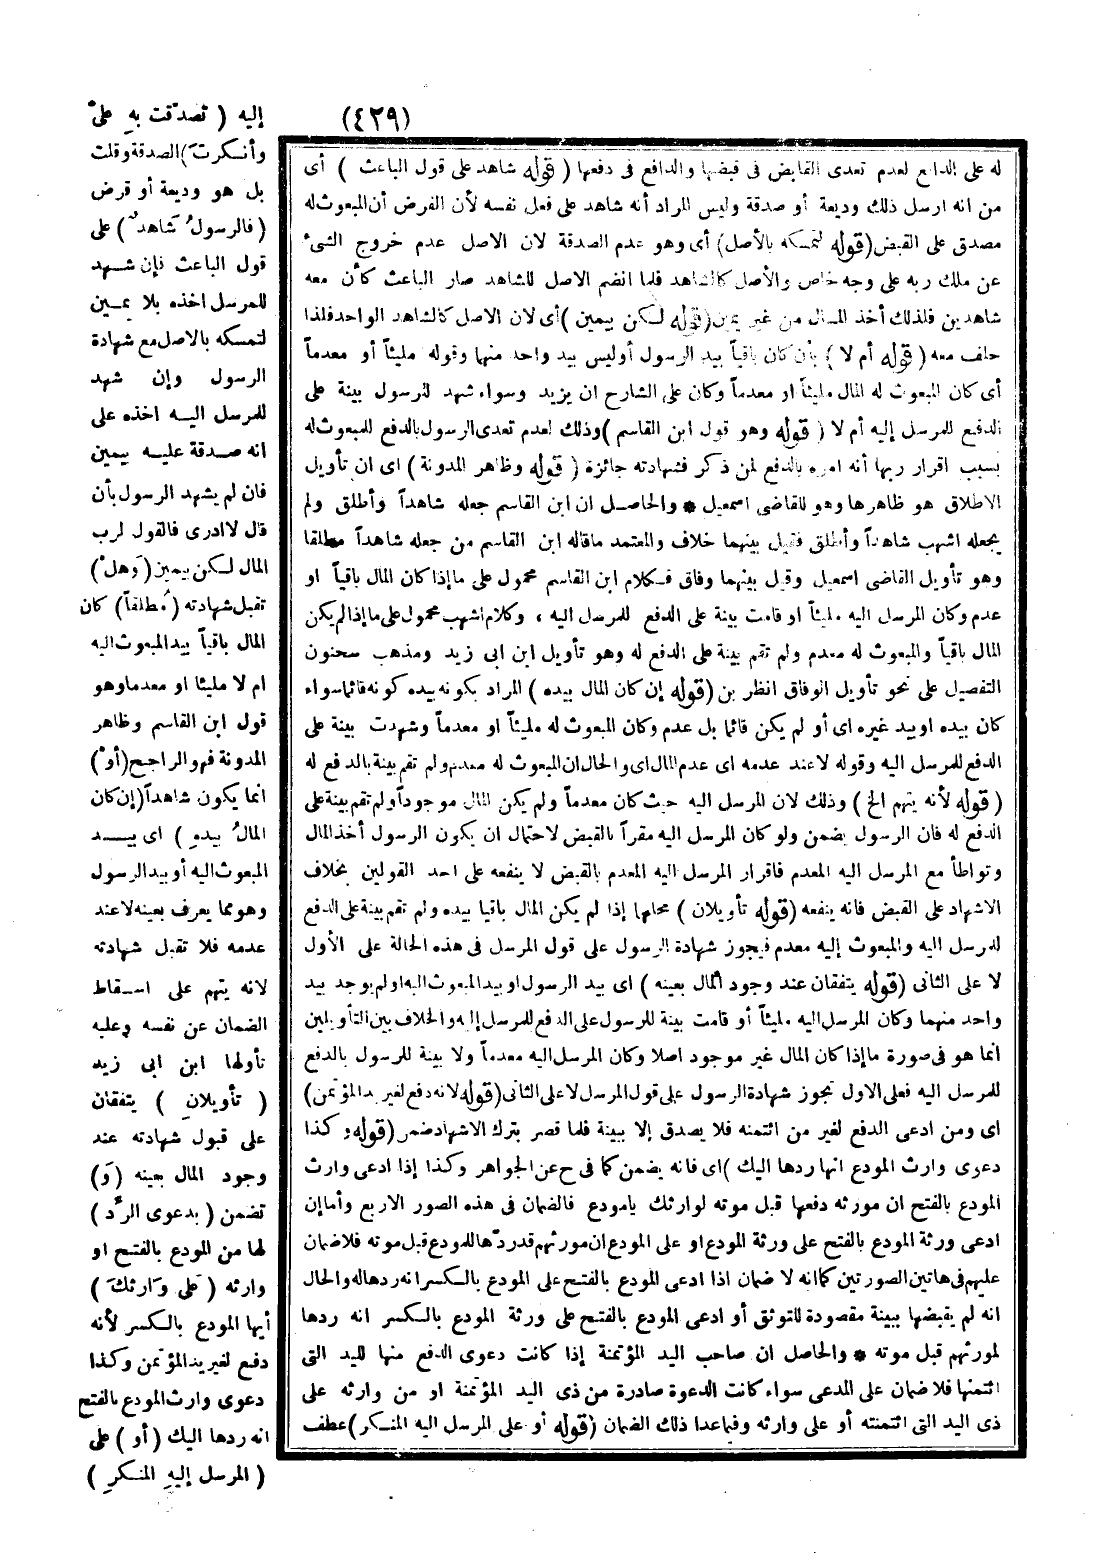 (٤٢٩)
إليه ( تصدّقت بهِ علىّ
وأنكرتَ )الصدقة وقلت
بل هو وديعة أو قرض
( فالرسولُ شاهدٌ ) على
قول الباعث فإن شهد
للمرسل اخذه بلا يمين
لتمسكه بالاصل مع شهادة
الرسول وإن شهد
للمرسل اليه اخذه على
انه صدقة عليه بيمين
فان لم يشهد الرسول بأن
قال لا ادرى فالقول لرب
المال لكن بيمين (وَهل )
تقبل شهادته ( مُطلقاً ) كان
المال باقياً بيد المبعوث اليه
ام لا مليئا او معدما وهو
قول ابن القاسم وظاهر
المدونة فهو الراجح (أوْ )
انما يكون شاهداً (إن كان
المالُ بيدهِ ) اى بيد
المبعوث اليه أو بيد الرسول
وهو مما يعرف بعينه لا عند
عدمه فلا تقبل شهادته
لانه يتهم على اسقاط
الضمان عن نفسه وعليه
تأولها ابن ابى زيد
( تأويلانِ ) يتفقان
على قبول شهادته عند
وجود المال بعينه (وَ)
تضمن ( بدعوى الردّ )
لها من المودع بالفتح او
وارثه ( عَلى وَارثكَ )
أيها المودع بالكسر لأنه
دفع لغير يد المؤتمن وكذا
دعوى وارث المودع بالفتح
انه ردها اليك ( أو ) على
( المرسل إليهِ المنكرِ )
له على الدافع لعدم تعدى القابض فى قبضها والدافع فى دفعها ( قوله شاهد على قول الباعث ) أى
من انه ارسل ذلك وديعة أو صدقة وليس المراد أنه شاهد على فعل نفسه لأن الفرض أن المبعوث له
مصدق على القبض (قوله لتمسكه بالأصل) أى وهو عدم الصدقة لان الاصل عدم خروج الشىء
عن ملك ربه على وجه خاص والأصل كالشاهد فلما انضم الاصل للشاهد صار الباعث كأن معه
شاهدين فلذلك أخذ المال من غير يمين (قوله لكن بيمين )أى لان الاصل كالشاهد الواحد فلذا
حلف معه ( قوله أم لا ) بأن كان باقياً بيد الرسول أو ليس بيد واحد منهما وقوله مليئاً أو معدماً
أى كان المبعوث له المال مليئاً او معدماً وكان على الشارح ان يزيد وسواء شهد للرسول بينة على
الدفع للمرسل إليه أم لا ( قوله وهو قول ابن القاسم )وذلك لعدم تعدى الرسول بالدفع للمبعوث له
بسبب اقرار ربها أنه امره بالدفع لمن ذكر فشهادته جائزة ( قوله وظاهر المدونة ) اى ان تأويل
الاطلاق هو ظاهرها وهو للقاضى اسمعيل * والحاصل ان ابن القاسم جعله شاهداً وأطلق ولم
يجعله اشهب شاهداً وأطلق فقيل بينهما خلاف والمعتمد ماقاله ابن القاسم من جعله شاهداً مطلقا
وهو تأويل القاضى اسمعيل وقيل بينهما وفاق فكلام ابن القاسم محمول على ما إذا كان المال باقياً او
عدم وكان المرسل اليه مليئاً او قامت بينة على الدفع للمرسل اليه ، وكلام اشهب محمول على ما إذا لم يكن
المال باقياً والمبعوث له معدم ولم تقم بينة على الدفع له وهو تأويل ابن ابى زيد ومذهب سحنون
التفصيل على نحو تأويل الوفاق انظر بن (قوله إن كان المال بيده ) المراد بكونه بيده كونه قائما سواء
كان بيده او بيد غيره اى أو لم يكن قائما بل عدم وكان المبعوث له مليئاً او معدماً وشهدت بينة على
الدفع للمرسل اليه وقوله لا عند عدمه اى عدم المال اى والحال ان المبعوث له معدم ولم تقم بينة بالدفع له
( قوله لأنه يتهم الخ ) وذلك لان المرسل اليه حيث كان معدماً ولم يكن المال موجوداً ولم تقم بينة على
الدفع له فان الرسول يضمن ولو كان المرسل اليه مقراً بالقبض لاحتمال ان يكون الرسول أخذ المال
وتواطأ مع المرسل اليه المعدم فاقرار المرسل اليه المعدم بالقبض لا ينفعه على احد القولين بخلاف
الاشهاد على القبض فانه ينفعه (قوله تأويلان ) محلهما إذا لم يكن المال باقيا بيده ولم تقم بينة على الدفع
للمرسل اليه والمبعوث إليه معدم فيجوز شهادة الرسول على قول المرسل فى هذه الحالة على الأول
لا على الثانى (قوله يتفقان عند وجود المال بعينه ) اى بيد الرسول او بيد المبعوث اليه او لم يوجد بيد
واحد منهما وكان المرسل اليه مليئاً أو قامت بينة للرسول على الدفع للمرسل إليه والخلاف بين التأويلين
انما هو فى صورة ما إذا كان المال غير موجود اصلا وكان المرسل اليه معدماً ولا بينة للرسول بالدفع
للمرسل اليه فعلى الاول تجوز شهادة الرسول على قول المرسل لا على الثانى (قوله لانه دفع لغير يد المؤتمن)
اى ومن ادعى الدفع لغير من ائتمنه فلا يصدق إلا ببينة فلما قصر بترك الاشهاد ضمن (قوله وكذا
دعوى وارث المودع انها ردها اليك )اى فانه يضمن كما فى ح عن الجواهر وكذا إذا ادعى وارث
المودع بالفتح ان مورثه دفعها قبل موته لوارثك يامودع فالضمان فى هذه الصور الاربع وأما إن
ادعى ورثة المودع بالفتح على ورثة المودع او على المودع ان مورثهم قد ردّها للمودع قبل موته فلا ضمان
عليهم فى هاتين الصورتين كما انه لا ضمان اذا ادعى المودع بالفتح على المودع بالكسر انه ردها له والحال
انه لم يقبضها ببينة مقصودة للتوثق أو ادعى المودع بالفتح على ورثة المودع بالكسر انه ردها
لمورثهم قبل موته * والحاصل ان صاحب اليد المؤتمنة إذا كانت دعوى الدفع منها لليد التى
ائتمنها فلا ضمان على المدعى سواء كانت الدعوة صادرة من ذى اليد المؤتمنة او من وارثه على
ذى اليد التى ائتمنته أو على وارثه وفيما عدا ذلك الضمان (قوله أو على المرسل اليه المنكر )عطف